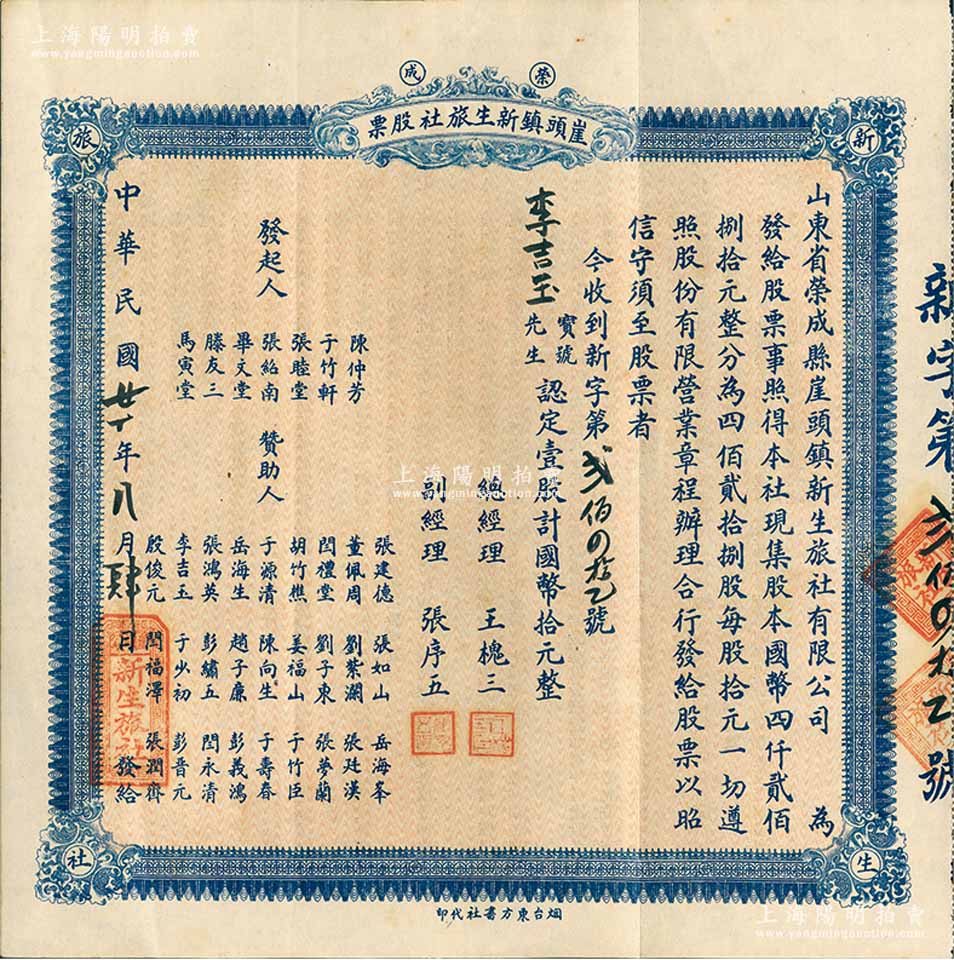 上海陽明拍賣
www.yangmingauction.com
榮成
崖頭鎮新生旅社股票
新
生
旅
社
山東省榮成縣崖頭鎮新生旅社有限公司 為
發給股票事照得本社現集股本國幣四仟貳佰
捌拾元整分為四佰貳拾捌股每股拾元一切遵
照股份有限營業章程辦理合行發給股票以昭
信守須至股票者
今收到新字第弍佰〇拾乙號
李吉玉 寶號先生 認定壹股計國幣拾元整
總經理 王槐三
副經理 張序五
發起人
陳仲芳
于竹軒
張睦堂
張紿南
畢文堂
滕友三
馬寅堂
贊助人
張建德 張如山 岳海峯
董佩周 劉紫瀾 張廷漢
閆禮堂 劉子東 張夢蘭
胡竹樵 姜福山 于竹臣
于源清 陳向生 于壽春
岳海生 趙子廉 彭義鴻
張鴻英 彭繡五 閆永清
李吉玉 于少初 彭晋元
殷俊元 閆福澤 張潤齊
中華民國廿一年八月肆日 發給
新生旅社
新字第弍佰〇拾乙號
烟台東方書社代印
上海陽明拍賣
www.yangmingauction.com
上海陽明拍賣
www.yangmingauction.com